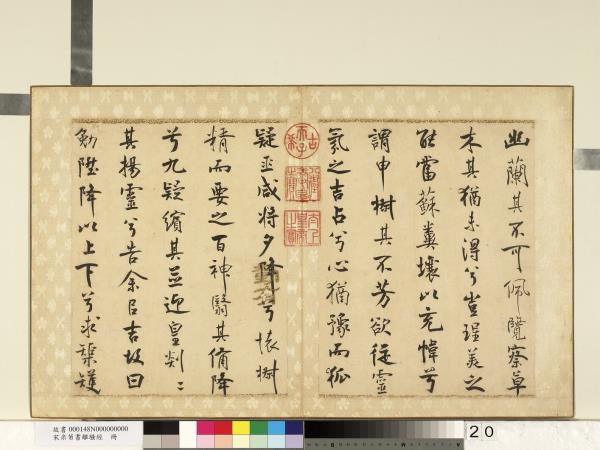 幽蘭其不可佩覽察草
木其猶未得兮豈珵美之
能當蘇糞壤以充幃兮
謂申椒其不芳欲從靈
氛之吉占兮心猶豫而狐
疑巫咸將夕降兮懷椒
精而要之百神翳其備降
兮九疑繽其並迎皇剡〻
其揚靈兮告余以吉故曰
勉陞降以上下兮求榘矱
古希天子
八徵耄念之寶
太上皇帝之寶
故書 000148N000000000
宋米芾書離騷經 冊
20